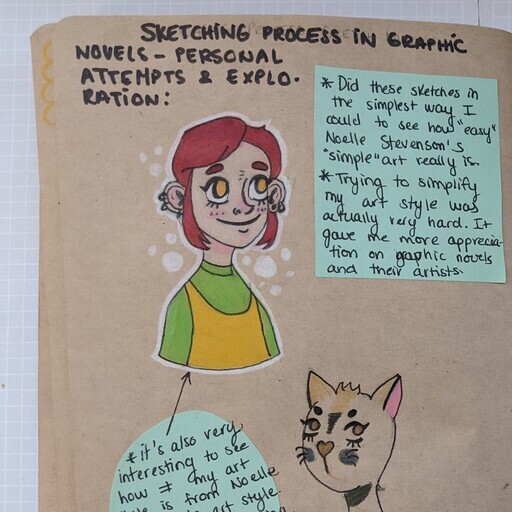 SKETCHING PROCESS IN GRAPHIC
NOVELS - PERSONAL
ATTEMPTS & EXPLO.
RATION:
* Did these sketches in
the simplest way I
could to see how "easy"
Noelle Stevenson's
"simple" art really is.
* Trying to simplify
my art style was
actually very hard. It
gave me more apprecia-
tion on graphic novels
and their artists.
* it's also very
interesting to see
how ≠ my art
style is from Noelle
art style.